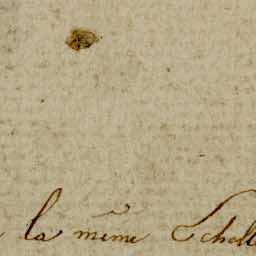 la même Echell